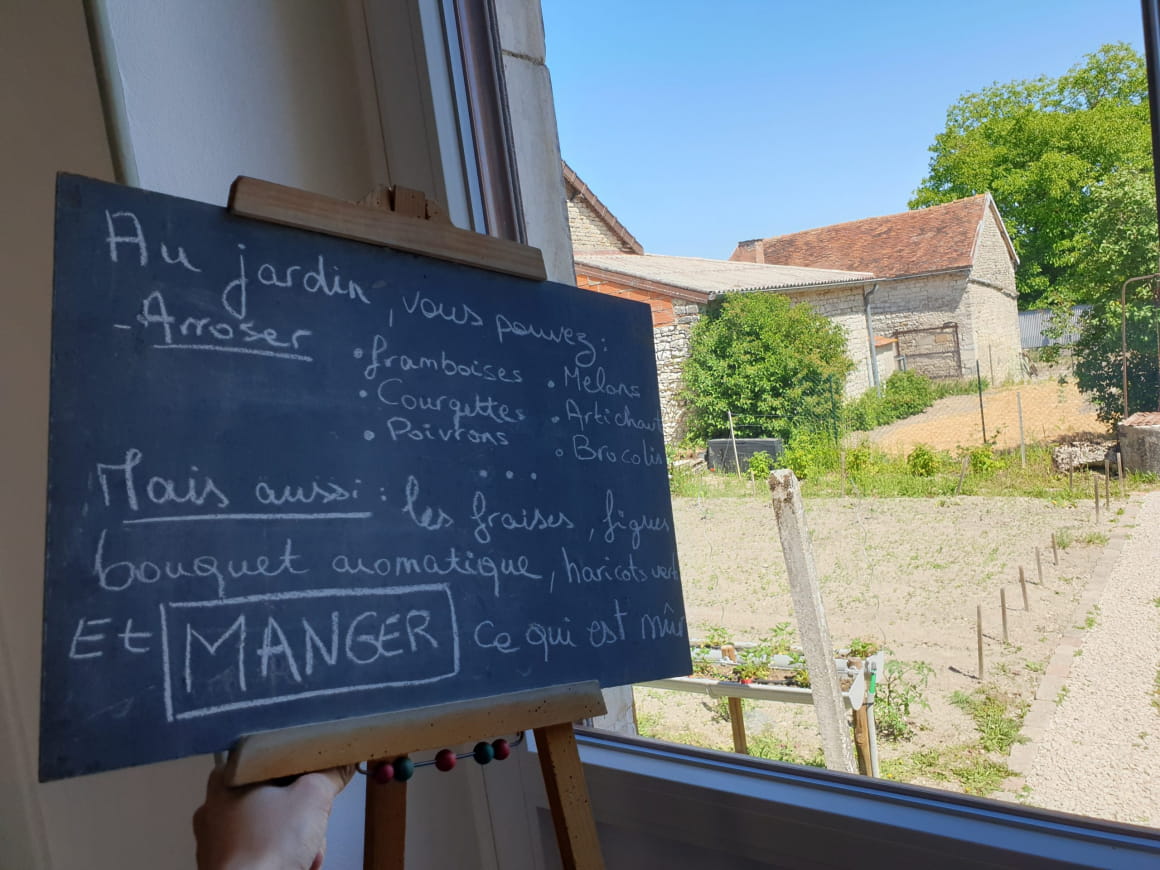 Au jardin, vous pouvez:
- Arroser
• framboises • Melons
• Courgettes • Artichaut
• Poivrons • Brocolis
...
Mais aussi: les fraises, figues
bouquet aromatique, haricots vert
Et MANGER ce qui est mûr